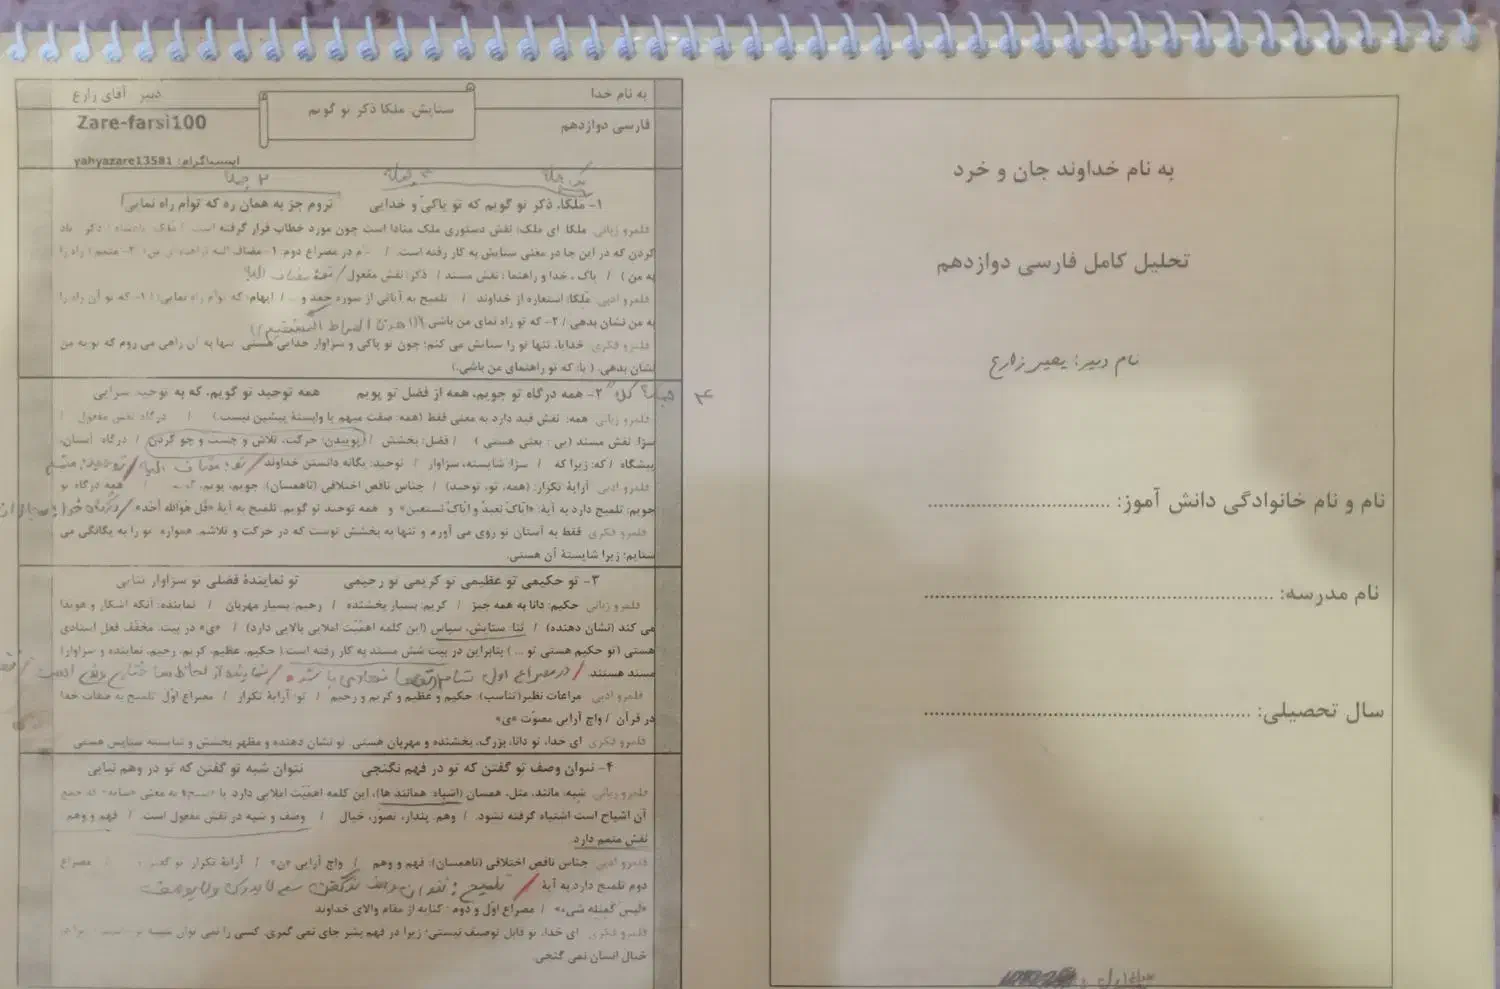 به نام خداوند جان و خرد
تحلیل کامل فارسی دوازدهم
نام دبیر: یحیی زارع
نام و نام خانوادگی دانش آموز: ................................
نام مدرسه: ................................
سال تحصیلی: ................................
به نام خدا
دبیر آقای زارع
ستایش. ملکا ذکر تو گویم
فارسی دوازدهم
Zare-farsi100
اینستاگرام: yahyazare13581
یک جمله ۳ جمله ۲ جمله
۱- ملکا، ذکر تو گویم که تو پاکی و خدایی نروم جز به همان ره که توام راه نمایی
قلمرو زبانی ملکا: ای ملک؛ نقش دستوری ملک منادا است چون مورد خطاب قرار گرفته است. / ملک: پادشاه / ذکر: یاد
کردن که در این جا در معنی ستایش به کار رفته است. / ـَم در مصراع دوم: ۱- مضاف الیه ۲- متمم ( راه را
به من ) / پاک ، خدا و راهنما : نقش مسند / ذکر: نقش مفعول / تو: مضاف الیه
قلمرو ادبی ملکا: استعاره از خداوند / تلمیح به آیاتی از سوره حمد و ... / ایهام: که توام راه نمایی: ( ۱- که تو آن راه را
به من نشان بدهی / ۲- که تو راه نمای من باشی ) (( اهدنا الصراط المستقیم ))
قلمرو فکری خدایا، تنها تو را ستایش می کنم؛ چون تو پاکی و سزاوار خدایی هستی. تنها به آن راهی می روم که تو به من
نشان بدهی. ( یا: که تو راهنمای من باشی.)
۲- همه درگاه تو جویم، همه از فضل تو پویم همه توحید تو گویم، که به توحید سزایی
قلمرو زبانی همه: نقش قید دارد به معنی فقط (همه: صفت مبهم یا وابستهٔ پیشین نیست.) / درگاه: نقش مفعول /
سزا: نقش مسند (یی : یعنی هستی ) / فضل: بخشش / پوییدن: حرکت، تلاش و جست و جو کردن / درگاه: آستان،
پیشگاه / که: زیرا که / سزا: شایسته، سزاوار / توحید: یگانه دانستن خداوند / تو: مضاف الیه / توحید: متمم
قلمرو ادبی آرایهٔ تکرار: (همه، تو، توحید) / جناس ناقص اختلافی (ناهمسان): جویم، پویم، / همه درگاه تو
جویم: تلمیح دارد به آیهٔ: «ایّاک نعبدُ و ایّاک نستعین» و همه توحید تو گویم: تلمیح به آیهٔ «قُل هُوَالله اَحَد»
قلمرو فکری فقط به آستان تو روی می آورم و تنها به بخشش توست که در حرکت و تلاشم. همواره تو را به یگانگی می
ستایم؛ زیرا شایستهٔ آن هستی.
۳- تو حکیمی تو عظیمی تو کریمی تو رحیمی تو نمایندهٔ فضلی تو سزاوار ثنایی
قلمرو زبانی حکیم: دانا به همه چیز / کریم: بسیار بخشنده / رحیم: بسیار مهربان / نماینده: آنکه آشکار و هویدا
می کند (نشان دهنده) / ثنا: ستایش، سپاس (این کلمه اهمّیت املایی بالایی دارد) / «ی» در بیت، مخفّف فعل اسنادی
هستی (تو حکیم هستی تو ... ) بنابراین در بیت شش مسند به کار رفته است ( حکیم، عظیم، کریم، رحیم، نماینده و سزاوار)
مسند هستند.
قلمرو ادبی مراعات نظیر(تناسب): حکیم و عظیم و کریم و رحیم / تو: آرایهٔ تکرار / مصراع اوّل: تلمیح به صفات خدا
در قرآن / واج آرایی مصوّت «ی»
قلمرو فکری ای خدا، تو دانا، بزرگ، بخشنده و مهربان هستی. تو نشان دهنده و مظهر بخشش و شایسته ستایش هستی
۴- نتوان وصف تو گفتن که تو در فهم نگنجی نتوان شبه تو گفتن که تو در وهم نیایی
قلمرو زبانی شبه: مانند، مثل، همسان (اشباه: همانند ها)، این کلمه اهمّیت املایی دارد. با «شبح» به معنی «سایه» که جمع
آن اشباح است اشتباه گرفته نشود. / وهم: پندار، تصوّر، خیال / وصف و شبه در نقش مفعول است. / فهم و وهم
نقش متمم دارد.
قلمرو ادبی جناس ناقص اختلافی (ناهمسان): فهم و وهم / واج آرایی «ن» / آرایهٔ تکرار: تو / مصراع
دوم تلمیح دارد به آیهٔ
«لَیسَ کَمِثلِه شَیء» / مصراع اوّل و دوم : کنایه از مقام والای خداوند
قلمرو فکری ای خدا، تو قابل توصیف نیستی؛ زیرا در فهم بشر جای نمی گیری. کسی را نمی توان شبیه تو
خیال انسان نمی گنجی.